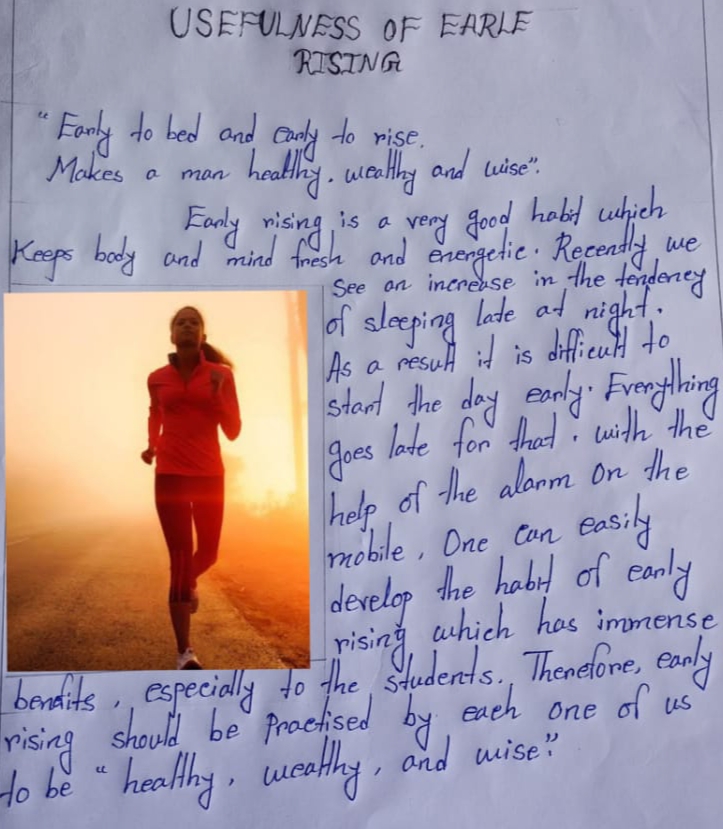 USEFULNESS OF EARLE
RISING
"Early to bed and early to rise.
Makes a man healthy, wealthy and wise".
Early rising is a very good habit which
Keeps body and mind fresh and energetic. Recently we
See an increase in the tendency
of sleeping late at night.
As a result it is difficult to
start the day early. Everything
goes late for that. with the
help of the alarm on the
mobile, One can easily
develop the habit of early
rising which has immense
benefits, especially to the students. Therefore, early
rising should be Practised by each one of us
to be "healthy, wealthy, and wise".